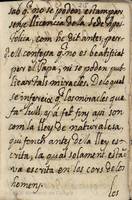 sab q̃ no se poden estampar
sens llicencia de la Sede Apos-
tolica, com he dit antes, per
dell contepra q̃ no es beatificat
per el Papa, ni se poden pu-
blicar tals miracles. Delo qual
se infereix q̃ los miracles que
fa Lull, si ja fet fins así son
com la lley de naturalesa,
qui fonch antes de la lley es-
crita, la qual solament esta-
va escrita en los cors de los
homens.
los